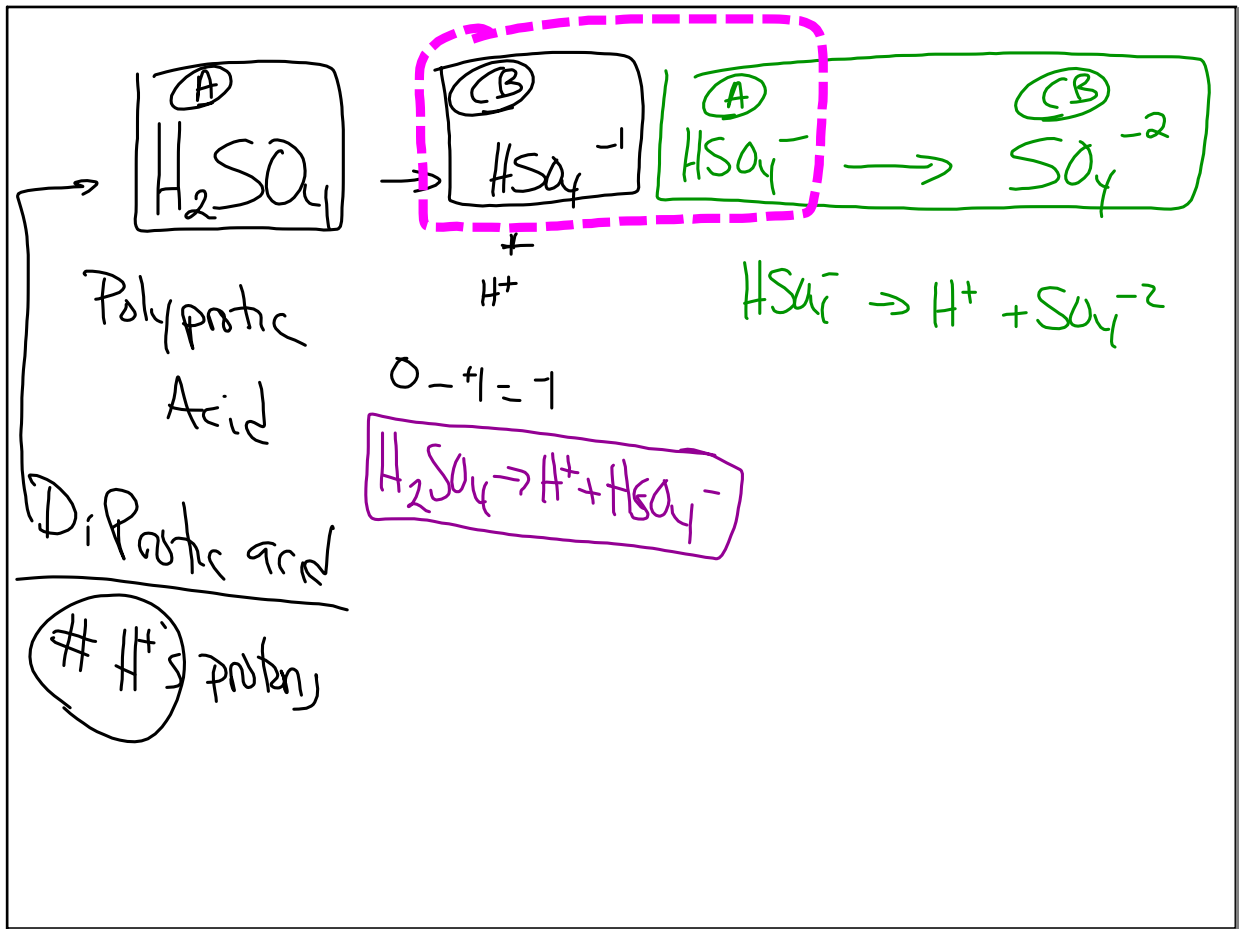 A CB A CB
H₂SO₄ → HSO₄⁻¹ HSO₄⁻ → SO₄⁻²
+
H⁺
HSO₄⁻ → H⁺ + SO₄⁻²
Polyprotic
Acid
0 - +1 = -1
H₂SO₄ → H⁺ + HSO₄⁻
DiProtic acid
# H⁺'s protons